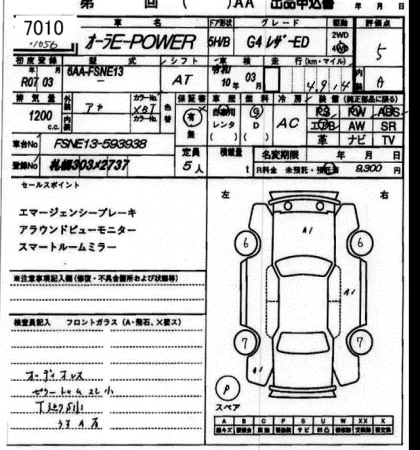 第 回 ( )AA 出品申込書 年 月 日
7010
1056
車名 ドア形状 グレード 駆動 評価点
オーラE-POWER 5H/B G4 レザーED 2WD 4WD 5
初度登録 型式 シフト 車検 走行(km・マイル) 内装
R07 03 6AA-FSNE13 AT 令和 10年 03月 4,914 A
排気量 外装 カラーNo. 色替 保証書 車歴 燃料 冷房 装備(純正部品に限る)
1200 c.c. アカ XBJ 有 無 自家用 レンタ ( ) G D ( ) AC PS PW ABS
内装 カラーNo. エアB AW SR
革 ナビ TV
車台No FSNE13-593938 定員 積載量 名変期限 年 月 日
登録No 札幌303×2737 5人 t R料金 未預託・預託済 9,300 円
セールスポイント
エマージェンシーブレーキ
アラウンドビューモニター
スマートルームミラー
左 右
6 6
A1
A1
7 7
A1
※注意事項記入欄(修復・不具合箇所および状態等)
検査員記入 フロントガラス(A・飛石、X要ス)
オーディオレス
P
スペア
A B C P S U W X XX